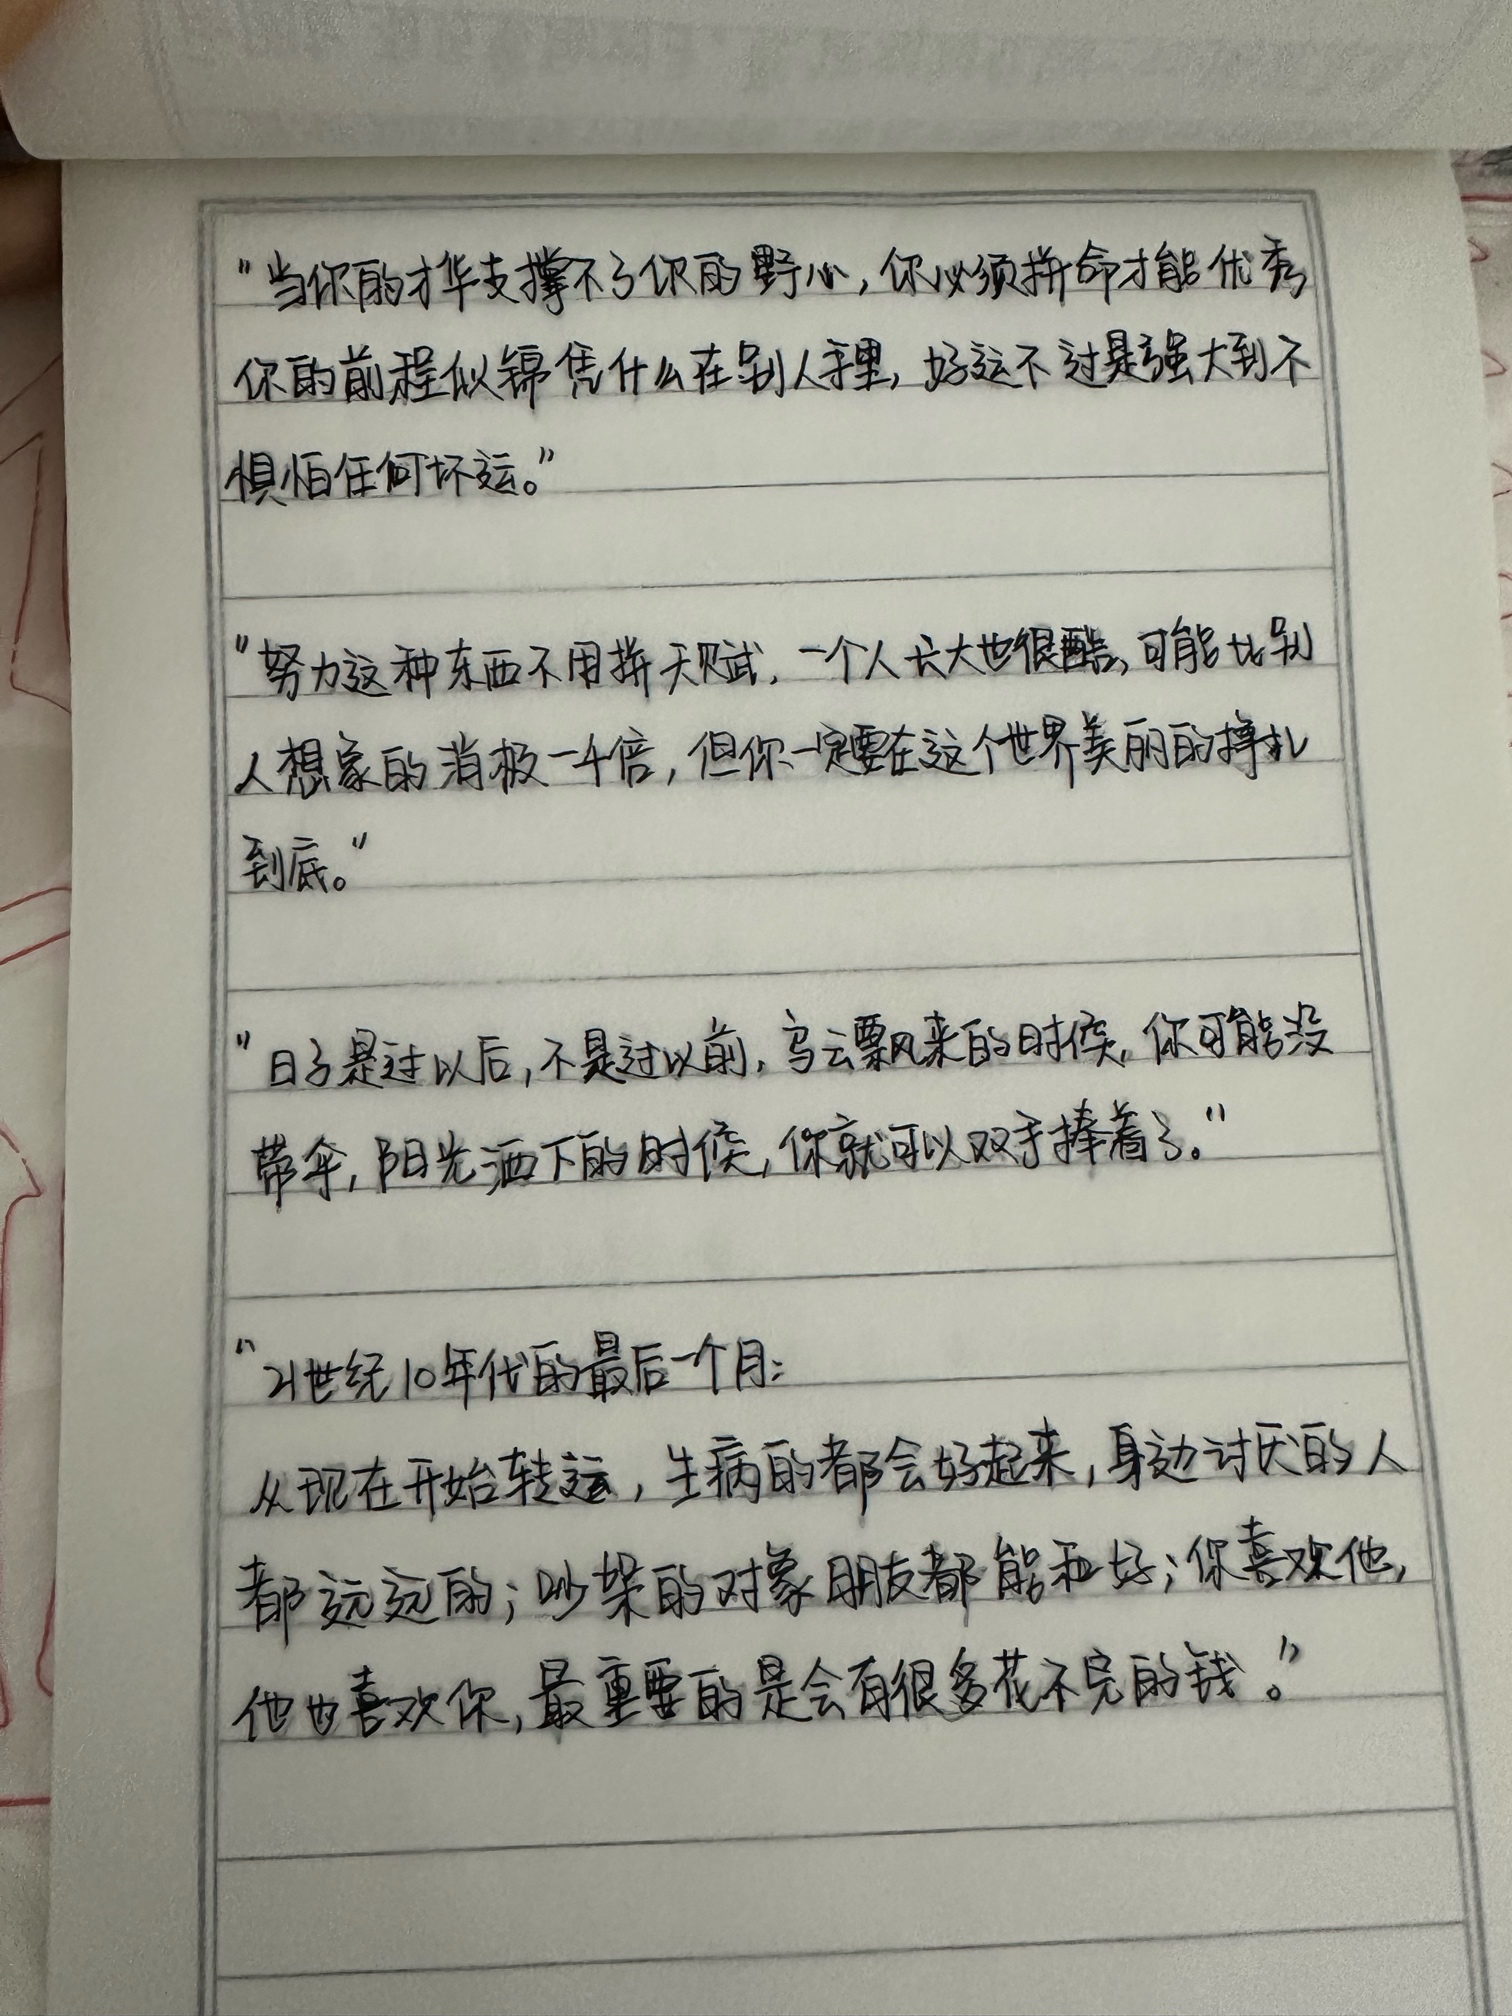 "当你的才华支撑不了你的野心，你必须拼命才能优秀
你的前程似锦凭什么在别人手里，好运不过是强大到不
惧怕任何坏运。"
"努力这种东西不用拼天赋，一个人长大也很酷，可能比别
人想象的消极一千倍，但你一定要在这个世界美丽的挣扎
到底。"
"日子是过以后，不是过以前，乌云飘来的时候，你可能没
带伞，阳光洒下的时候，你就可以双手捧着了。"
"21世纪10年代的最后一个月：
从现在开始转运，生病的都会好起来，身边讨厌的人
都远远的；吵架的对象朋友都能和好；你喜欢他，
他也喜欢你，最重要的是会有很多花不完的钱。"